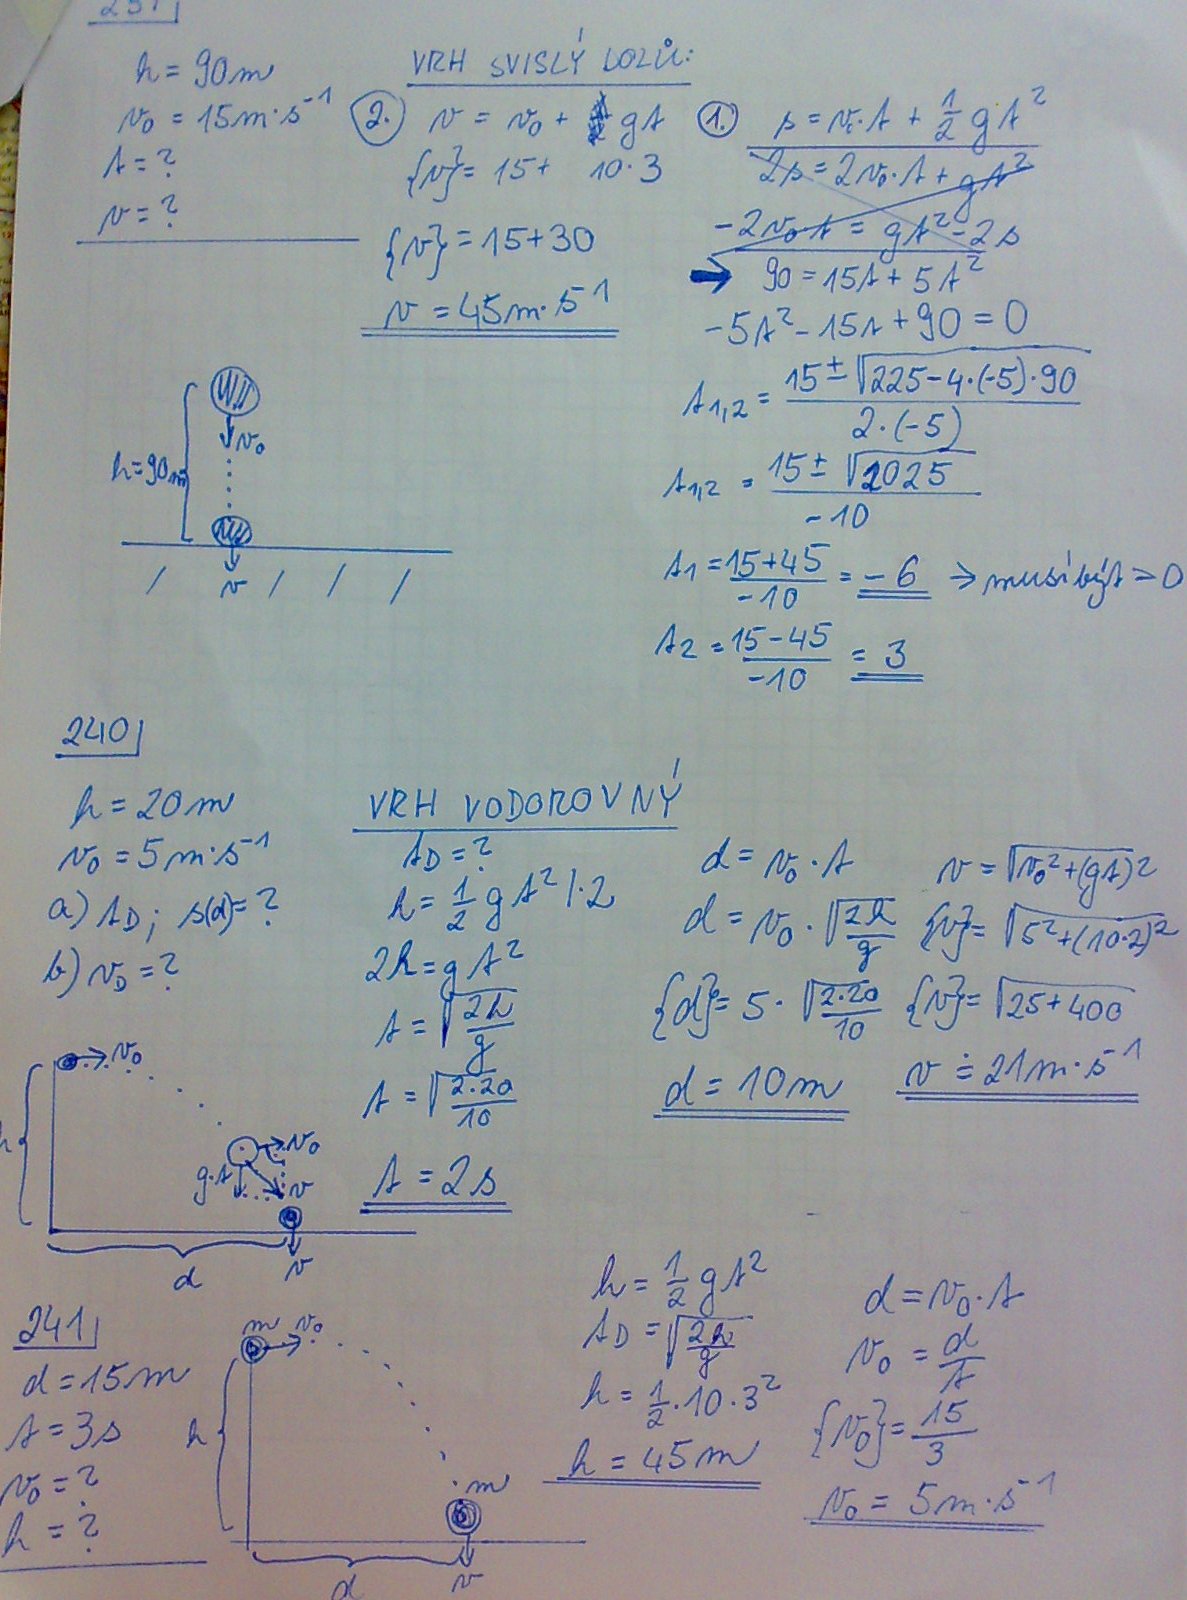 h = 90m
v₀ = 15m·s⁻¹
t = ?
v = ?
VRH SVISLÝ DOLŮ:
2. v = v₀ + gt
{v} = 15 + 10·3
{v} = 15+30
v = 45m·s⁻¹
1. s = v₀·t + 1/2 gt²
2s = 2v₀·t + gt²
-2v₀t = gt² - 2s
→ 90 = 15t + 5t²
-5t² - 15t + 90 = 0
t1,2 = (15 ± √(225-4·(-5)·90)) / (2·(-5))
t1,2 = (15 ± √2025) / -10
t1 = (15+45) / -10 = -6 → musí být > 0
t2 = (15-45) / -10 = 3
h=90m
v₀
v
240
h = 20m
v₀ = 5m·s⁻¹
a) tD; s(d)= ?
b) vD = ?
VRH VODOROVNÝ
tD = ?
h = 1/2 gt² /·2
2h = gt²
t = √(2h/g)
t = √(2·20/10)
t = 2s
d = v₀·t
d = v₀·√(2h/g)
{d} = 5·√(2·20/10)
d = 10m
v = √(v₀²+(gt)²)
{v} = √(5²+(10·2)²)
{v} = √(25+400)
v ≐ 21m·s⁻¹
v₀
h
v₀
g·t
v
d
v
241
d = 15m
t = 3s
v₀ = ?
h = ?
m v₀
h
m
d
v
h = 1/2 gt²
tD = √(2h/g)
h = 1/2·10·3²
h = 45m
d = v₀·t
v₀ = d/t
{v₀} = 15/3
v₀ = 5m·s⁻¹